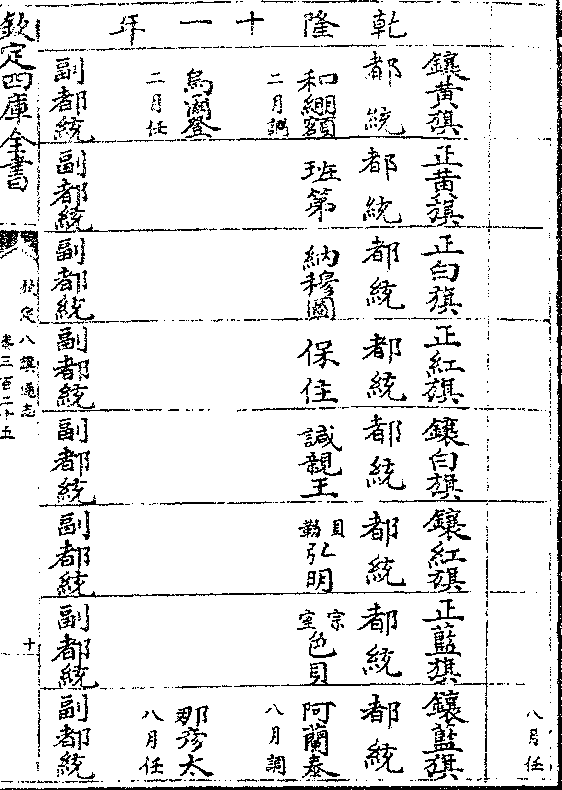 八月任
乾隆十一年
鑲黃旗
都統
和綳額
二月調
烏爾登
二月任
副都統
正黃旗
都統
班第
副都統
正白旗
都統
納穆圖
副都統
正紅旗
都統
保住
副都統
鑲白旗
都統
諴親王
副都統
鑲紅旗
都統
貝勒弘明
副都統
正藍旗
都統
宗室色貝
副都統
鑲藍旗
都統
阿蘭泰
八月調
那彥太
八月任
副都統
欽定四庫全書
欽定八旗通志
卷三百二十五
十